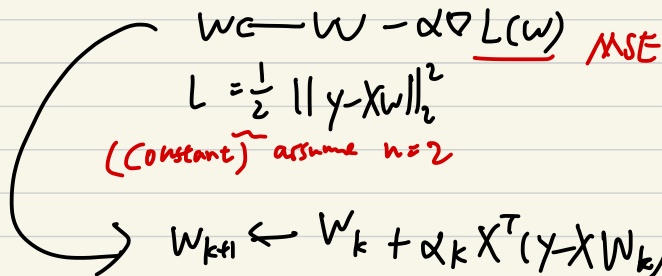 W ← W - α∇ L(W) MSE
L = 1/2 ||y-XW||₂²
(Constant) assume n=2
W_{k+1} ← W_k + α_k X^T (y-XW_k)